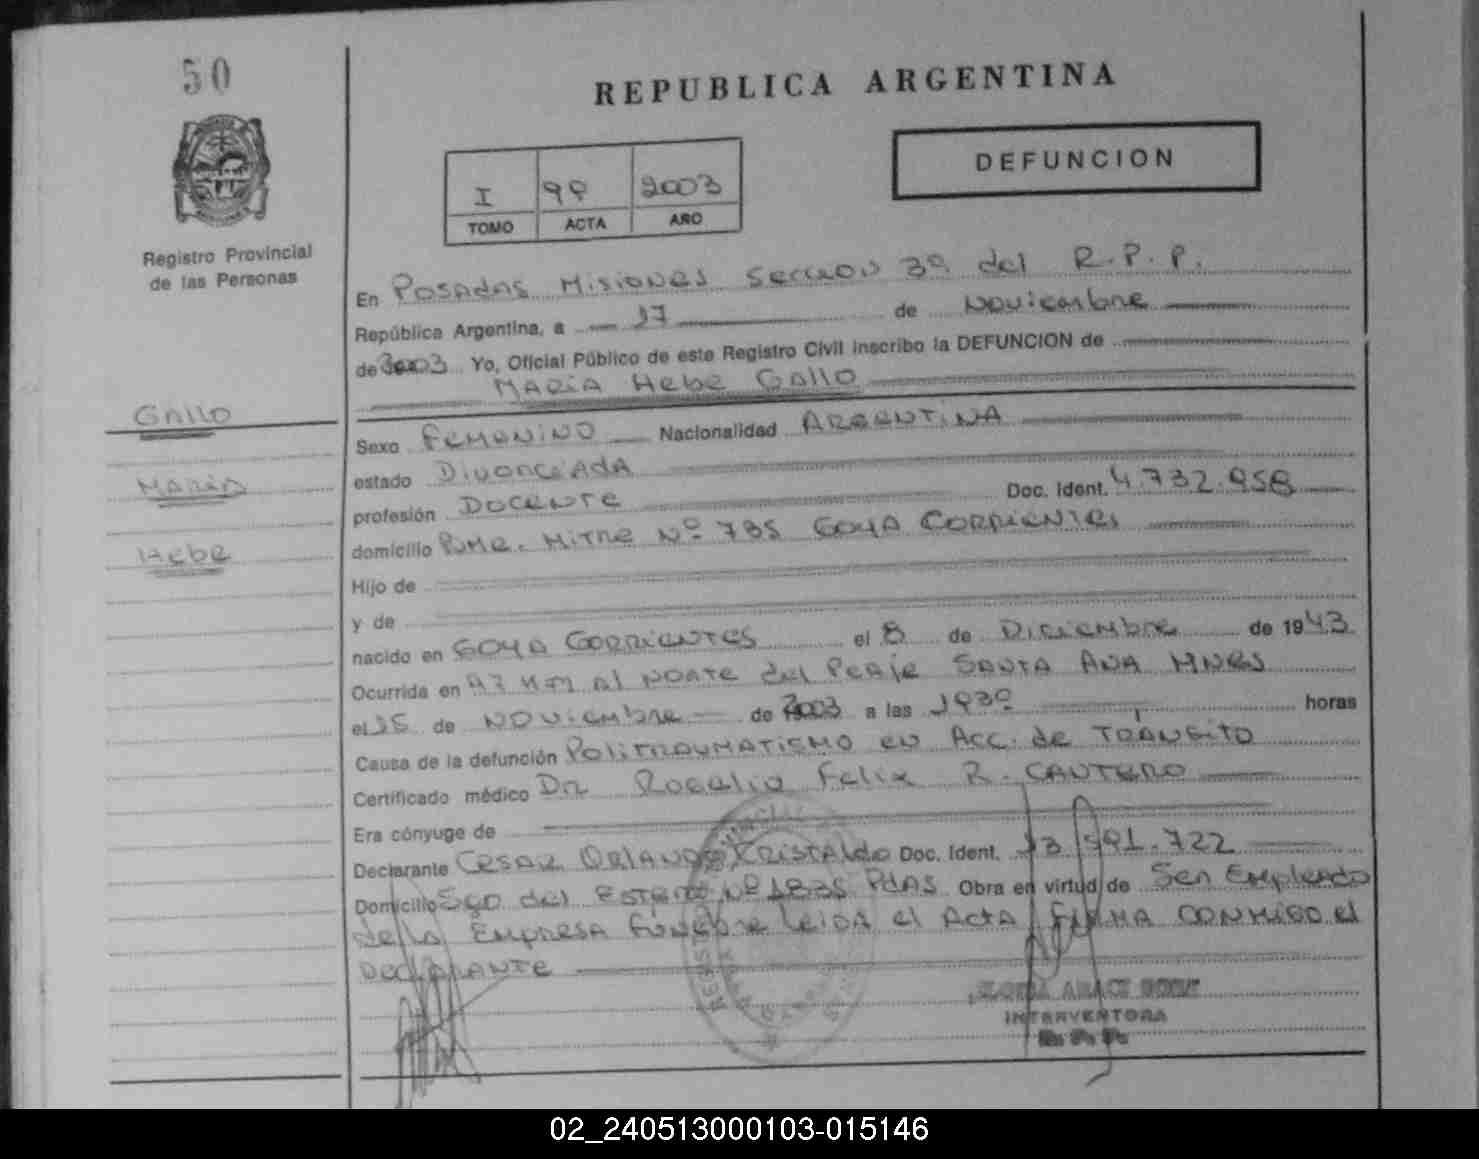 50
REPUBLICA ARGENTINA
DEFUNCION
I 99 2003
TOMO ACTA AÑO
Registro Provincial
de las Personas
En Posadas Misiones Seccion 3º del R.P.P.
República Argentina, a 17 de Noviembre
de 2003 Yo, Oficial Público de este Registro Civil inscribo la DEFUNCION de
Maria Hebe Gallo
Gallo
Maria
Hebe
Sexo Femenino Nacionalidad Argentina
estado Divorciada
profesión Docente Doc. Ident. 4.732.958
domicilio Pje. Mitre Nº 735 Goya Corrientes
Hijo de
y de
nacido en Goya Corrientes el 8 de Diciembre de 1943
Ocurrida en Km al norte del Peaje Santa Ana Mnes
el 15 de Noviembre de 2003 a las 1930 horas
Causa de la defunción Politraumatismo en Acc. de Transito
Certificado médico Dr Rogelio Felix R. Cantero
Era cónyuge de
Declarante Cesar Orlando Kristaldo Doc. Ident. 13.591.722
Domicilio Sgo del Estero Nº 1835 Pdas Obra en virtud de Ser Empleado
de la Empresa funebre leida el Acta firma conmigo el
Declarante
INTERVENTORA
02_240513000103-015146